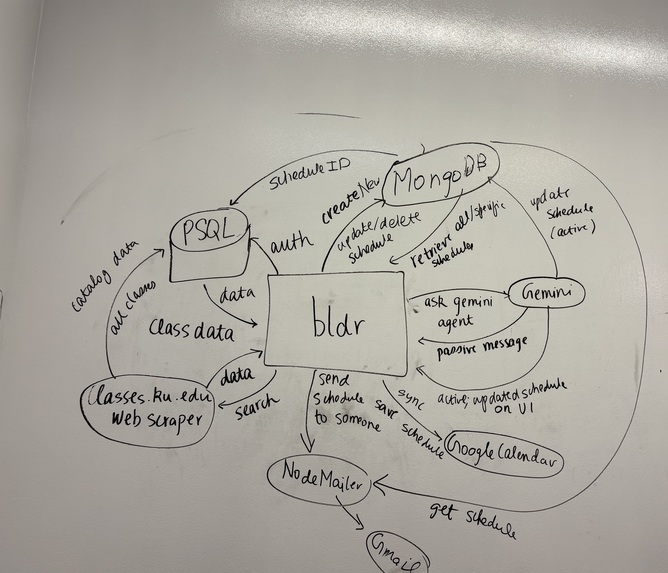 schedule ID
MongoDB
create New
update/delete
schedule
retrieve all/specific
schedules
update
schedule
(active)
PSQL
auth
catalog data
all classes
data
class data
bldr
ask gemini
agent
Gemini
passive message
active; updated schedule
on UI
classes.ku.edu
web scraper
data
search
send
schedule
to someone
sync
save schedule
Google Calendar
NodeMailer
get schedule
Gmail